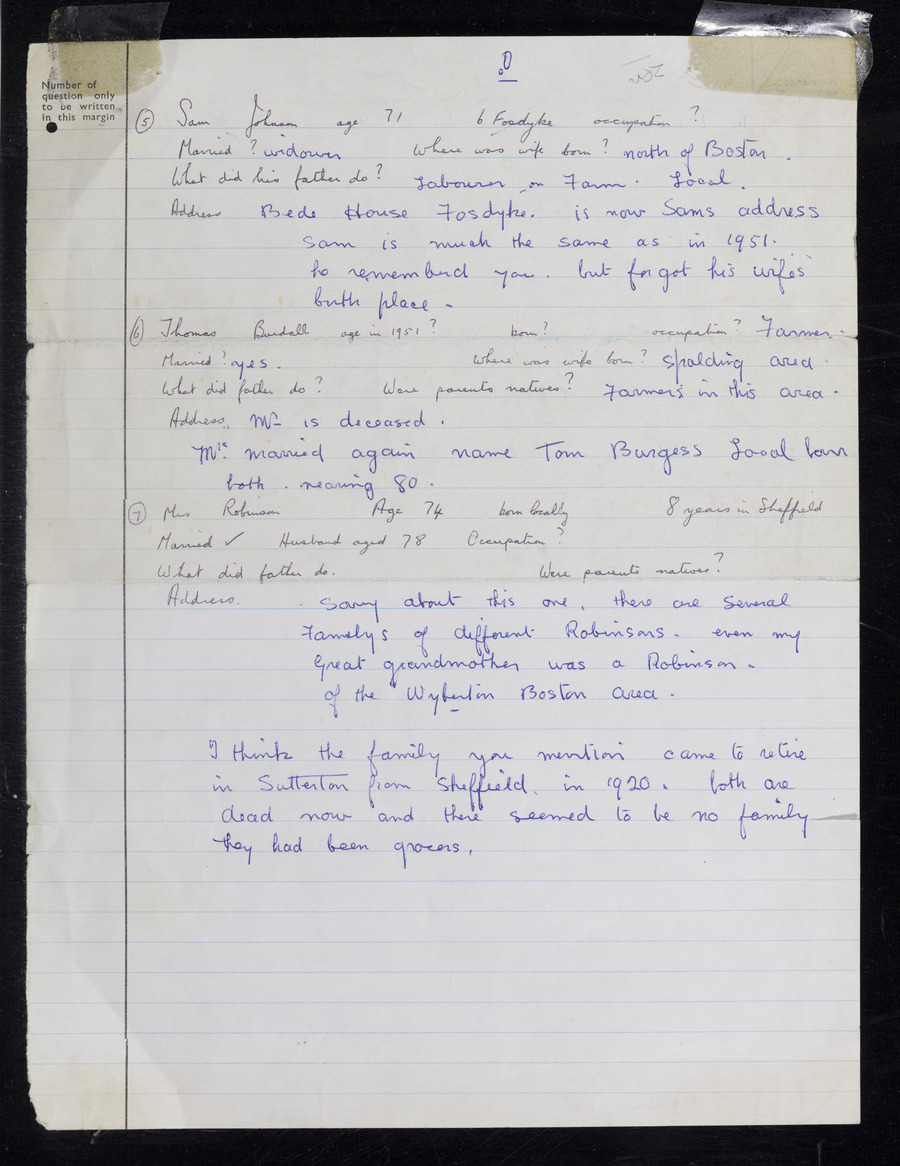 Number of
question only
to be written
in this margin
⑤ Sam Johnson age 71 b Fosdyke occupation ?
Married ? widower Where was wife born ? north of Boston .
What did his father do ? Labourer on Farm . Local .
Address Bede House Fosdyke . is now Sams address
Sam is much the same as in 1951 .
he rememberd you . but forgot his wifes
birth place -
⑥ Thomas age in 1951 ? born ? occupation ? Farmer -
Married ? yes . Where was wife born ? Spalding area .
What did father do ? Were parents natives ? Farmers in this area .
Address . Mr is deceased .
Mrs married again name Tom Burgess Local born
both . nearing 80 .
⑦ Mrs Robinson Age 74 born locally 8 years in Sheffield
Married ✓ Husband aged 78 Occupation ?
What did father do . Were parents natives ?
Address . Sorry about this one , there are several
Famelys of different Robinsons - even my
Great grandmother was a Robinson .
of the Wyberton Boston area .
I think the family you mention came to retire
in Sutterton from Sheffield . in 1920 . both are
dead now and there seemed to be no family
They had been grocers ,